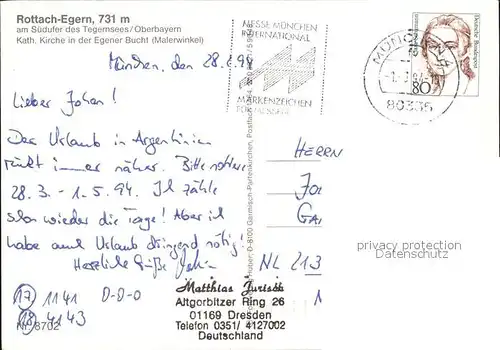 Rottach-Egern, 731 m
am Südufer des Tegernsees/Oberbayern
Kath. Kirche in der Egener Bucht (Malerwinkel)
München, den 28.2.94
Lieber Johan!
Der Urlaub in Argentinien
rückt immer näher. Bitte notiere
28.3. - 1.5.94. Ich zähle
schon wieder die Tage! Aber ich
habe auch Urlaub dringend nötig!
Herzliche Grüße
17) 1141 D-D-O
18) 4143
Nr. 8702
MESSE MÜNCHEN
INTERNATIONAL
MARKENZEICHEN
FÜR MESSEN
Deutsche Bundespost
80
MÜNCHEN
80336
HERRN
Jo
GA
NL 213
privacy protection
Datenschutz
Matthias Jurisch
Altgorbitzer Ring 26
01169 Dresden
Telefon 0351/ 4127002
Deutschland